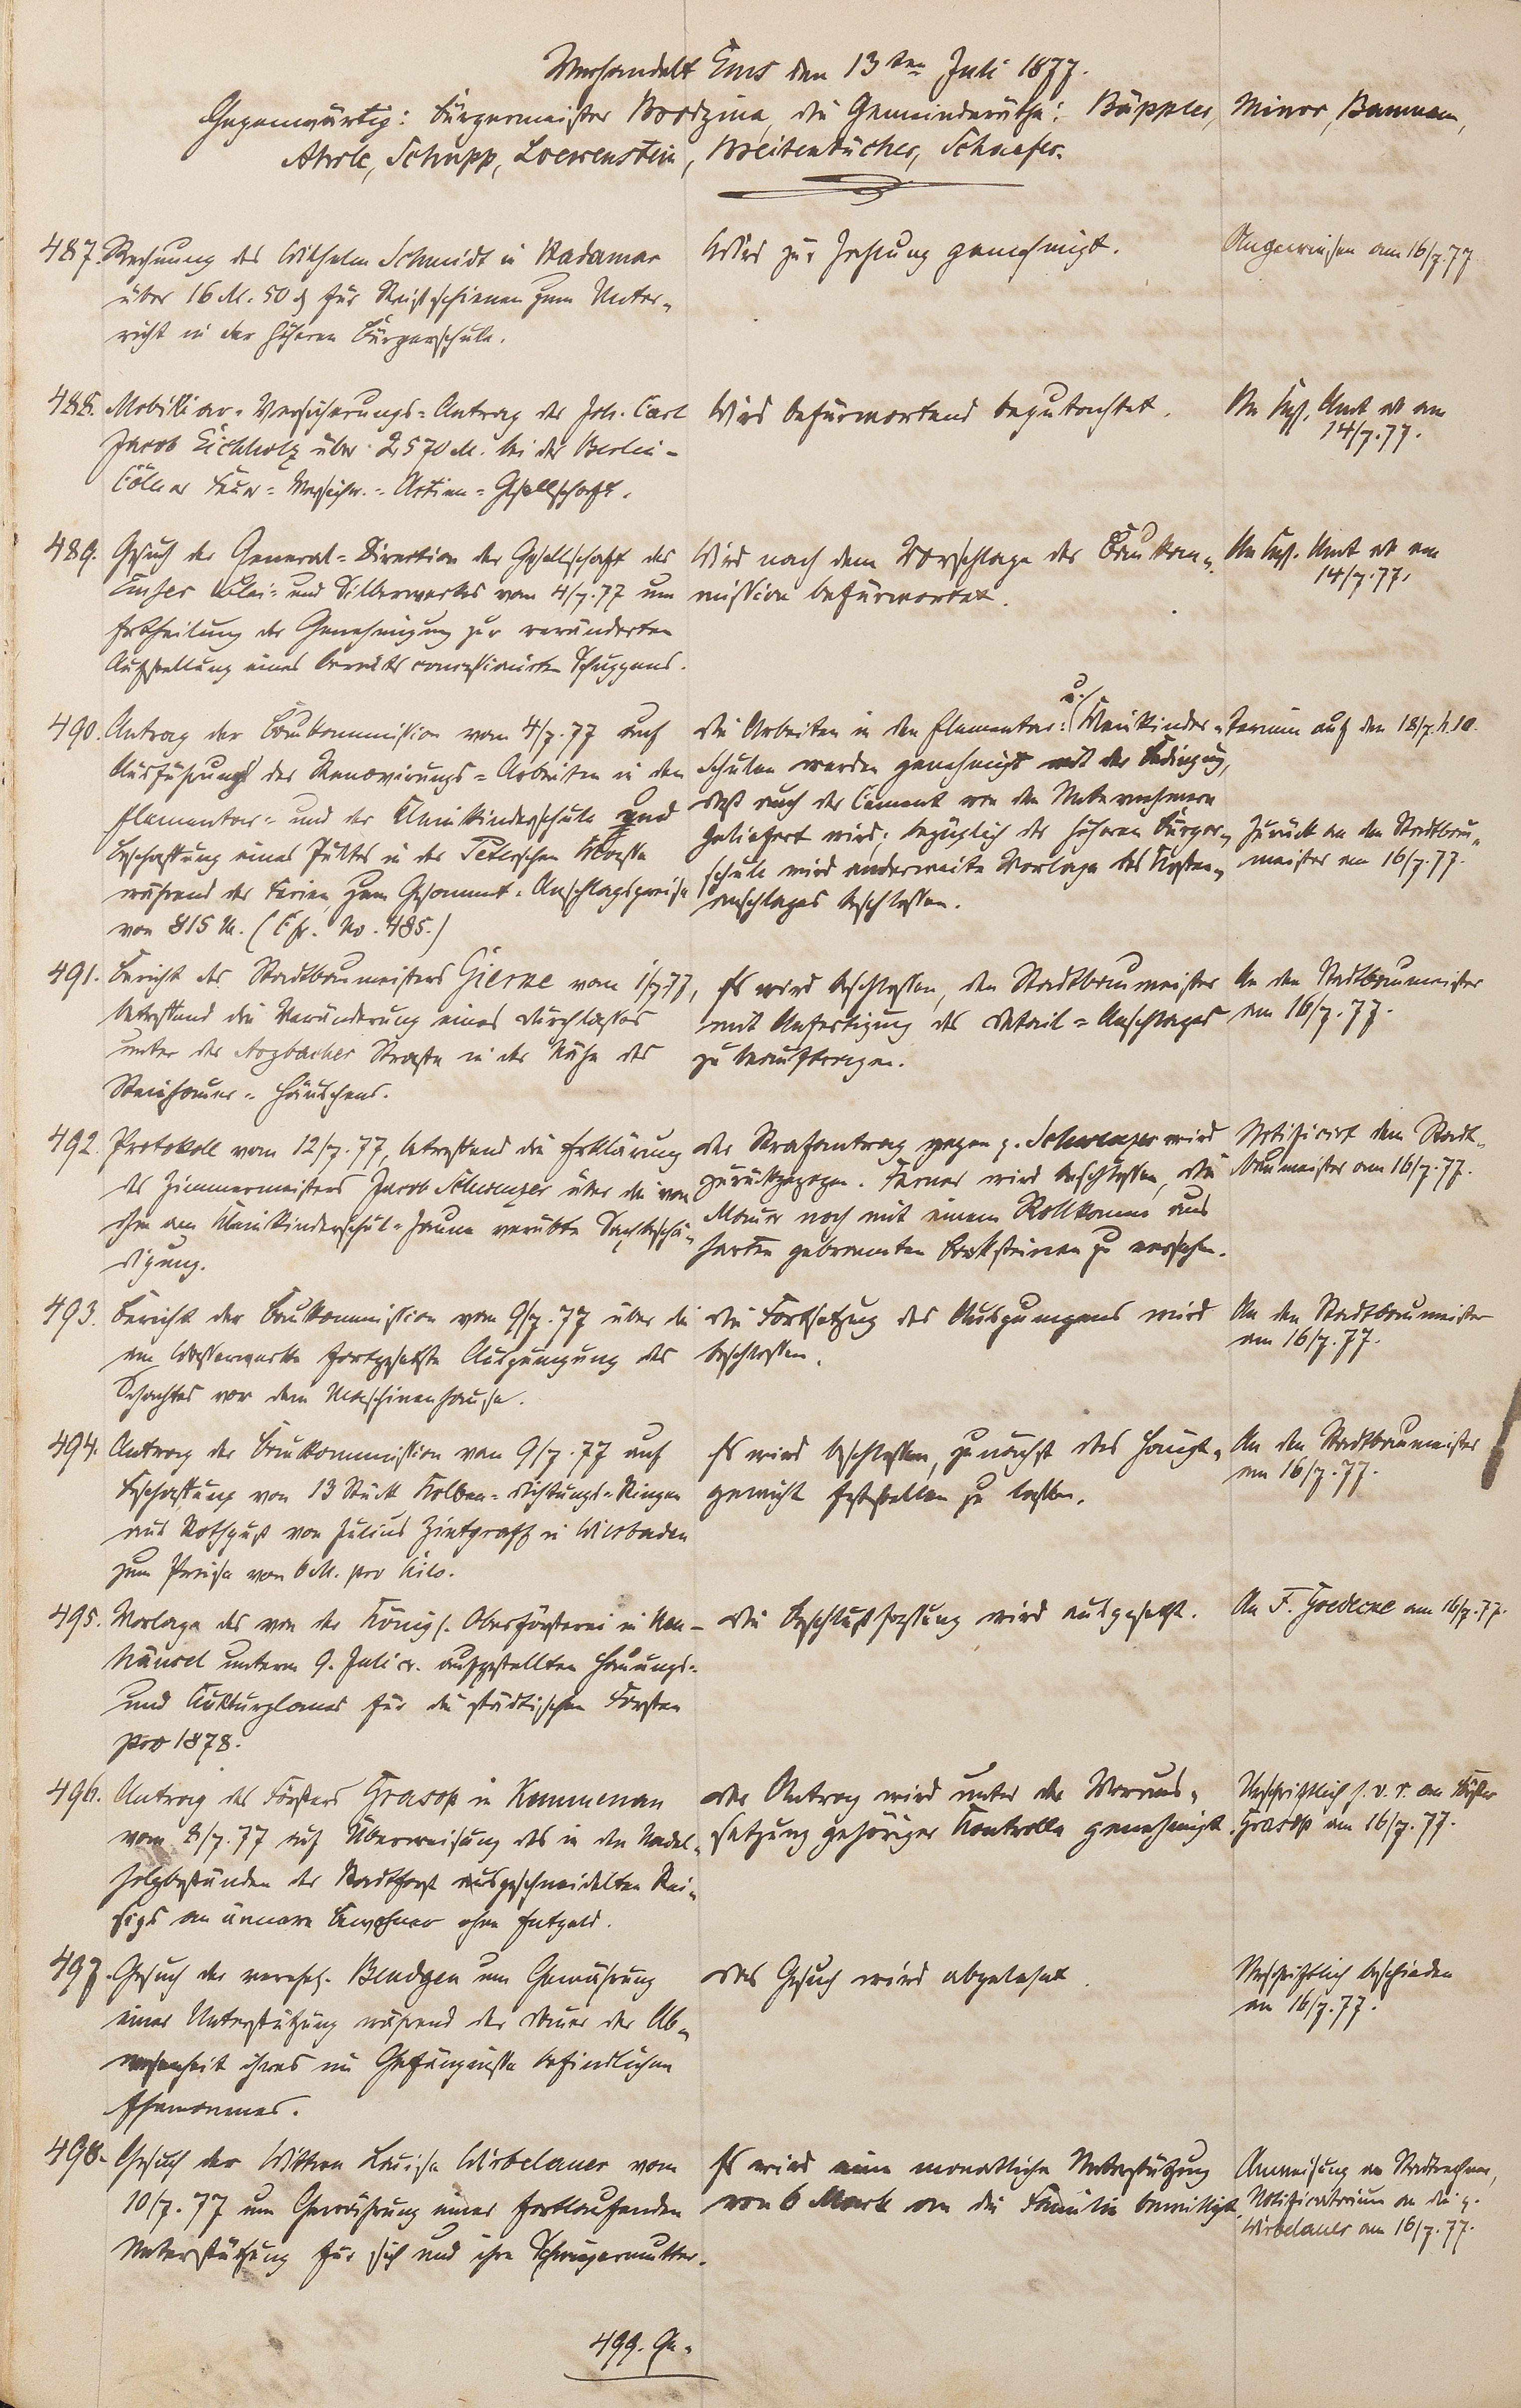 Verhandelt Ems den 13ten Juli 1877.
Gegenwärtig: Bürgermeister Wordzina, die Gemeinderäthe: Büppler, Minor, Baumann,
Ahrle, Schupp, Loewenstein, Breitenbücher, Schaefer.
487. Rechnung des Wilhelm Schmidt in Hadamar
über 16 M. 50 ₰ für Reißschienen zum Unter-
richt in der höheren Bürgerschule.
Wird zur Zahlung genehmigt.
Angewiesen am 16/7.77
488. Mobiliar-Versicherungs-Antrag des Joh. Carl
Jacob Eichholz über 2570 M. bei der Berlin-
Cölner Feuer-Versicher.-Actien-Gesellschaft.
Wird befürwortend begutachtet.
An Kgl. Amt ab am
14/7.77.
489. Gesuch der General-Direction der Gesellschaft des
Emser Blei- und Silberwerkes vom 4/7.77 um
Ertheilung der Genehmigung zur veränderten
Aufstellung eines bereits concessionirten Schuppens.
Wird nach dem Vorschlage der Baukom-
mission befürwortet.
An Kgl. Amt ab am
14/7.77.
490. Antrag der Baukommission vom 4/7.77 auf
Ausführung der Renovirungs-Arbeiten in den
Elementar- und der Kleinkinderschule und
Beschaffung eines Pultes in der Classe
während der Ferien zum Gesammt-Anschlagspreise
von 815 M. (Cfr. No. 485.)
Die Arbeiten in den Elementar- u. Kleinkinder-
schulen werden genehmigt mit der Bedingung,
daß auch der Cement von den Unternehmern
geliefert wird; bezüglich der höheren Bürger-
schule wird anderweite Vorlage des Kosten-
anschlages beschlossen.
Termin auf den 18/7. h. 10.
Zurück an den Stadtbau-
meister am 16/7.77.
491. Bericht des Stadtbaumeisters Gierke vom 1/7.77,
betreffend die Veränderung eines Durchlasses
unter der Arzbacher Straße in der Nähe des
Steinhauer-Häuschens.
Es wird beschlossen, den Stadtbaumeister
mit Anfertigung des Detail-Anschlages
zu beauftragen.
An den Stadtbaumeister
am 16/7.77.
492. Protokoll vom 12/7.77, betreffend die Erklärung
des Zimmermeisters Jacob Schwenzer über die von
ihm am Kleinkinderschul-Zaune verübte Sachbeschä-
digung.
Der Strafantrag gegen p. Schwenzer wird
zurückgezogen. Ferner wird beschlossen, die
Mauer noch mit einem Rollkamm aus
harten gebrannten Backsteinen zu versehen.
Notificirt dem Stadt-
baumeister am 16/7.77.
493. Bericht der Baukommission vom 9/7.77 über die
am Wasserwerke fortgesetzte Auspumpung des
Schachtes vor dem Maschinenhause.
Die Fortsetzung des Auspumpens wird
beschlossen.
An den Stadtbaumeister
am 16/7.77.
494. Antrag der Baukommission vom 9/7.77 auf
Beschaffung von 13 Stück Kolben-Dichtungs-Ringen
aus Rothguß von Julius Zintgraff in Wiesbaden
zum Preise von 6 M. pro Kilo.
Es wird beschlossen, zunächst das Haupt-
gewicht feststellen zu lassen.
An den Stadtbaumeister
am 16/7.77.
495. Vorlage des von der Königl. Oberförsterei in Neu-
häusel unterm 9. Juli cr. aufgestellten Hauungs-
und Culturplanes für die städtischen Forsten
pro 1878.
Die Beschlußfassung wird ausgesetzt.
An F. Goedecke am 16/7.77.
496. Antrag des Försters Grasop in Kemmenau
vom 8/7.77 auf Überweisung des in den Nadel-
holzbeständen der Stadtforst ausgeschneidelten Rei-
sigs an ärmere Bewohner ohne Entgeld.
Der Antrag wird unter der Voraus-
setzung gehöriger Kontrolle genehmigt.
Urschriftlich s. v. r. an Förster
Grasop am 16/7.77.
497. Gesuch der verehel. Bendgen um Gewährung
einer Unterstützung während der Dauer der Ab-
wesenheit ihres im Gefängnisse befindlichen
Ehemannes.
Das Gesuch wird abgelehnt.
Urschriftlich beschieden
am 16/7.77.
498. Gesuch der Wittwe Louise Wirbelauer vom
10/7.77 um Gewährung einer fortlaufenden
Unterstützung für sich und ihre Schwiegermutter.
Es wird eine monatliche Unterstützung
von 6 Mark an die Familie bewilligt.
Anweisung an Stadtrechner,
Notificatorium an die p.
Wirbelauer am 16/7.77.
499. Ge-